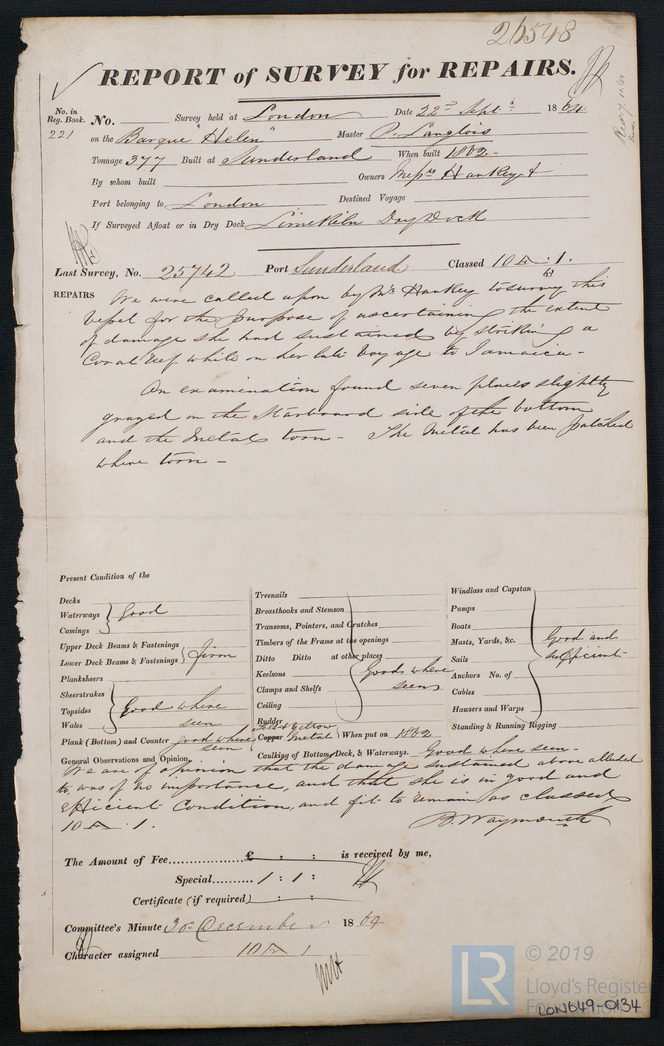 26548
REPORT of SURVEY for REPAIRS.
No. in Reg. Book. 221
No. Survey held at London Date 22nd Septr 1864
on the Barque "Helen" Master P. Langlois
Tonnage 377 Built at Sunderland When built 1862
By whom built Owners Messrs Hankey &
Port belonging to London Destined Voyage
If Surveyed Afloat or in Dry Dock Limekiln Dry Dock
Last Survey, No. 25742 Port Sunderland Classed 10 A . 1.
63
REPAIRS We were called upon by Mr Hankey to survey this
Vessel for the purpose of ascertaining the extent
of damage she had sustained by striking a
Coral Reef while on her late Voyage to Jamaica -
On examination found seven places slightly
grazed on the Starboard side of the bottom
and the Metal torn - The Metal has been patched
where torn -
Present Condition of the
Decks
Waterways Good
Comings
Upper Deck Beams & Fastenings
Lower Deck Beams & Fastenings firm
Planksheers
Sheerstrakes
Topsides Good where
Wales seen
Plank (Bottom) and Counter good where seen
Treenails
Breasthooks and Stemson
Transoms, Pointers, and Crutches
Timbers of the Frame at the openings
Ditto Ditto at other places
Keelsons Good where
Clamps and Shelfs seen
Ceiling
Rudder
Felt & Yellow
Copper Metal When put on 1862
Caulking of Bottom, Deck, & Waterways Good where seen -
Windlass and Capstan
Pumps
Boats
Masts, Yards, &c. Good and
Sails sufficient
Anchors No. of
Cables
Hausers and Warps
Standing & Running Rigging
General Observations and Opinion,
We are of opinion that the damage sustained above alluded
to, was of no importance, and that she is in good and
efficient Condition, and fit to remain as classed
10 A . 1. B. Waymouth
The Amount of Fee............... £ : : is received by me,
Special......... 1 : 1 :
Certificate (if required) : :
Committee's Minute 30 December 1864
Character assigned 10 A 1
LR © 2019
Lloyd's Register
Foundation
LON649-0134